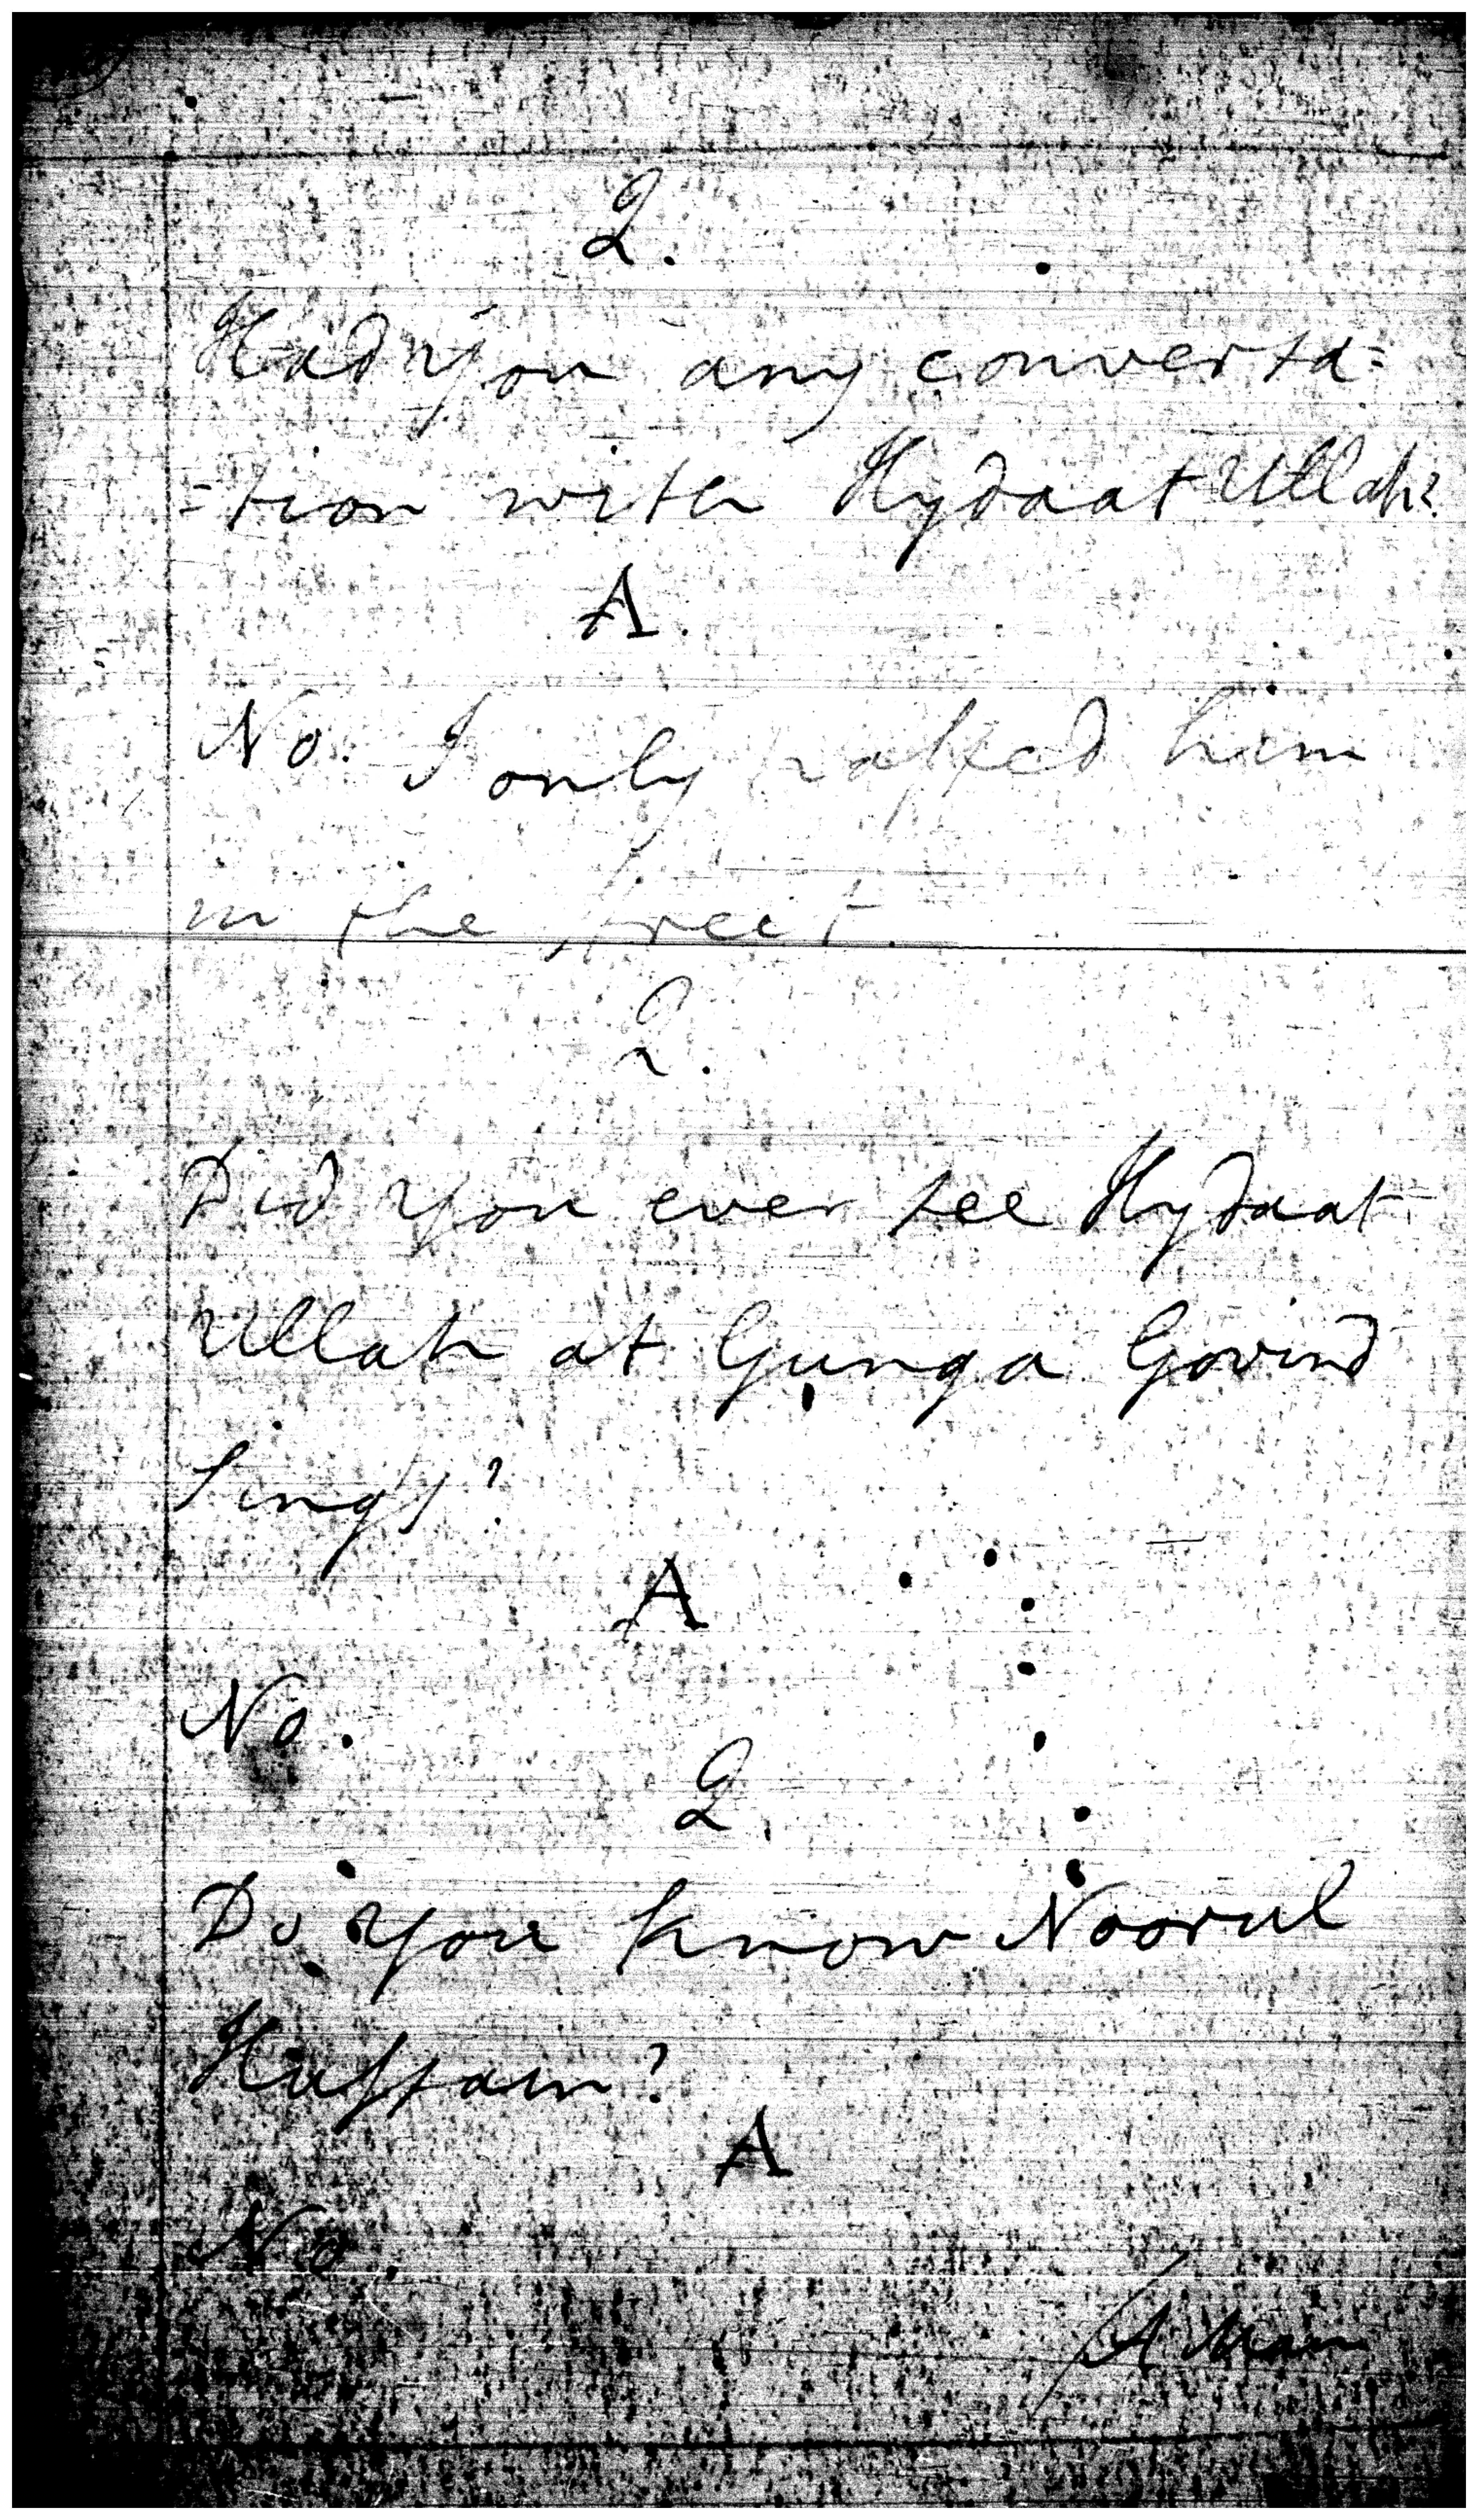 Q.
Had you any conversa=
=tion with Hydaat Ullah?
A.
No. I only passed him
in the street.
Q.
Did you ever see Hydaat
Ullah at Gunga Govind
Sings?
A
No.
Q.
Do you know Noorul
Hussain?
A
No.